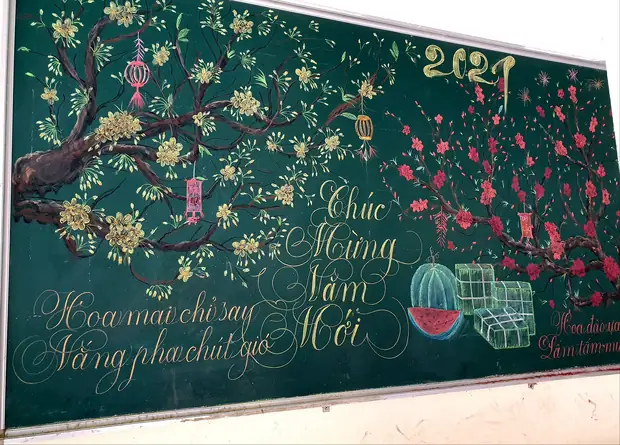 2021
Chúc
Mừng
Năm
Mới
Hoa mai chỉ say
Nắng pha chút gió
Hoa đào ưa
Lấm tấm